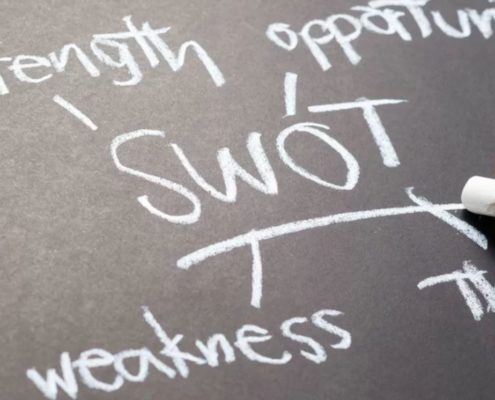 trength opportun
SWOT
weakness